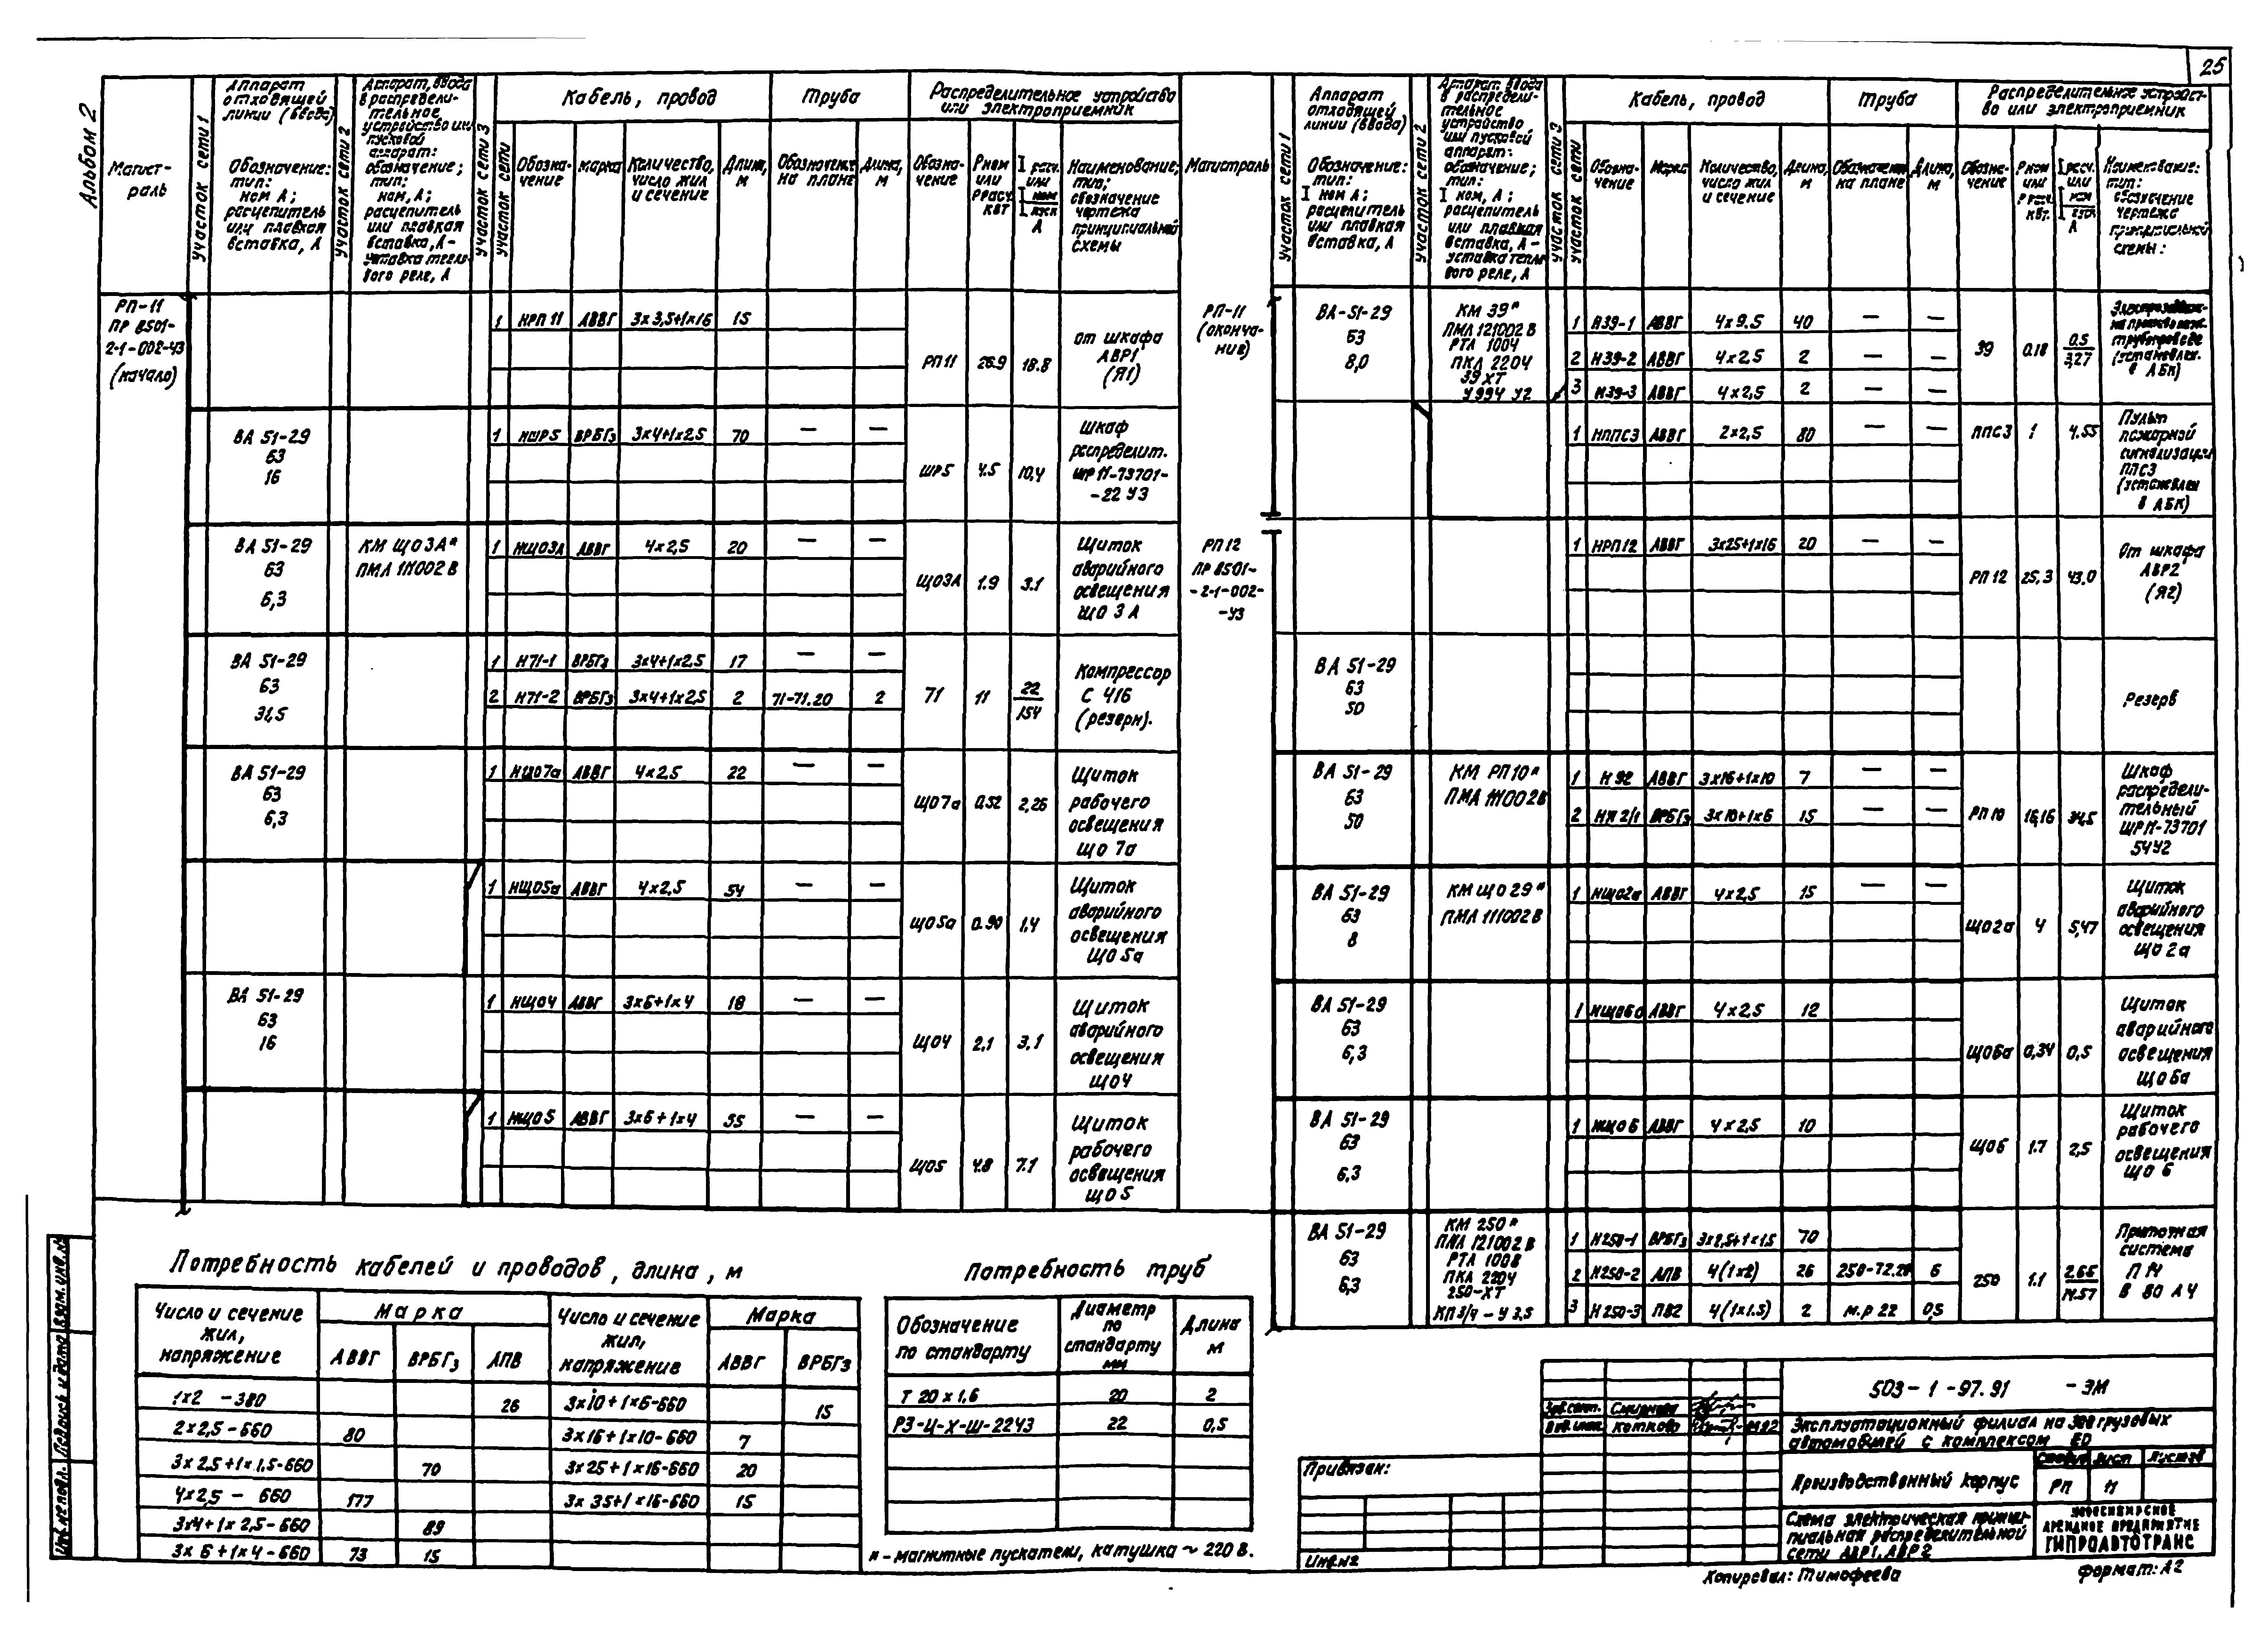 25
Альбом 2
Магист-
раль
участок сети 1
Аппарат
отходящей
линии (ввода)
Обозначение:
тип:
I ном А;
расцепитель
или плавкая
вставка, А
участок сети 2
Аппарат ввода
в распредели-
тельное
устройство или
пусковой
аппарат:
обозначение;
тип:
I ном, А;
расцепитель
или плавкая
вставка, А-
уставка тепло-
вого реле, А
участок сети 3
участок сети
Кабель, провод
Обозна-
чение
марка
Количество,
число жил
и сечение
Длина,
м
Труба
Обозначение
на плане
Длина,
м
Распределительное устройство
или электроприемник
Обозна-
чение
Р ном
или
Р расч.
кВт
I расч.
или
I ном
I пуск
А
Наименование,
тип,
обозначение
чертежа
принципиальной
схемы
РП-11
ПР 8501-
2-1-002-У3
(начало)
1 НРП 11 АВВГ 3х3,5+1х16 15
РП11 26.9 18.8
от шкафа
АВР1
(Я1)
ВА 51-29
63
16
1 НШР5 ВРБГз 3х4+1х2.5 70 — —
ШР5 4.5 10,4
Шкаф
распределит.
ШР 11-73701-
-22 У3
ВА 51-29
63
6,3
КМ ЩО3А*
ПМЛ 111002 В
1 НЩО3А АВВГ 4х2,5 20 — —
ЩО3А 1.9 3.1
Щиток
аварийного
освещения
ЩО 3 А
ВА 51-29
63
31,5
1 Н71-1 ВРБГз 3х4+1х2.5 17 — —
2 Н71-2 ВРБГз 3х4+1х2,5 2 71-71.20 2
71 11 22
154
Компрессор
С 416
(резерв).
ВА 51-29
63
6,3
1 НЩО7а АВВГ 4х2,5 22 — —
ЩО7а 0.52 2,26
Щиток
рабочего
освещения
ЩО 7а
1 НЩО5а АВВГ 4х2,5 54 — —
ЩО5а 0.90 1,4
Щиток
аварийного
освещения
ЩО 5а
ВА 51-29
63
16
1 НЩО4 АВВГ 3х6+1х4 18 — —
ЩО4 2,1 3,1
Щиток
аварийного
освещения
ЩО4
1 НЩО5 АВВГ 3х6+1х4 55 — —
ЩО5 4.8 7.1
Щиток
рабочего
освещения
ЩО 5
Магистраль
участок сети 1
Аппарат
отходящей
линии (ввода)
Обозначение:
тип:
I ном А;
расцепитель
или плавкая
вставка, А
участок сети 2
Аппарат ввода
в распредели-
тельное
устройство
или пусковой
аппарат:
обозначение;
тип:
I ном, А;
расцепитель
или плавкая
вставка, А-
уставка тепло-
вого реле, А
участок сети 3
участок сети
Кабель, провод
Обозна-
чение
Марка
Количество,
число жил
и сечение
Длина,
м
Труба
Обозначение
на плане
Длина,
м
Распределительное устройст-
во или электроприемник
Обозна-
чение
Р ном
или
Р расч.
кВт.
I расч.
или
А
Наименование:
тип:
обозначение
чертежа
принципиальной
схемы:
РП-11
(оконча-
ние)
ВА-51-29
63
8,0
КМ 39*
ПМЛ 121002 В
РТЛ 1004
ПКЛ 2204
39 ХТ
У994 У2
1 Н39-1 АВВГ 4х9.5 40 — —
2 Н39-2 АВВГ 4х2,5 2 — —
3 Н39-3 АВВГ 4х2,5 2 — —
39 0.18 0.5
3,27
трубопроводе
(установлен.
в АБК)
1 НППС3 АВВГ 2х2,5 80 — —
ППС3 1 4.55
Пульт
пожарной
сигнализации
ППС3
(установлен
в АБК)
РП 12
ПР 8501-
-2-1-002-
-У3
1 НРП12 АВВГ 3х25+1х16 20 — —
РП 12 25,3 43,0
От шкафа
АВР2
(Я2)
ВА 51-29
63
50
Резерв
ВА 51-29
63
50
КМ РП10*
ПМА 111002В
1 Н 92 АВВГ 3х16+1х10 7 — —
2 НЯ 2/1 ВРБГз 3х10+1х6 15 — —
РП 10 16,16 34,5
Шкаф
распредели-
тельный
ШР11-73701
54У2
ВА 51-29
63
8
КМ ЩО 29*
ПМЛ 111002 В
1 НЩО2а АВВГ 4х2,5 15 — —
ЩО2а 4 5,47
Щиток
аварийного
освещения
ЩО 2а
ВА 51-29
63
6,3
1 НЩО6а АВВГ 4х2,5 12
ЩО6а 0,34 0,5
Щиток
аварийного
освещения
ЩО 6а
ВА 51-29
63
6,3
1 НЩО6 АВВГ 4х2,5 10
ЩО6 1.7 2,5
Щиток
рабочего
освещения
ЩО 6
ВА 51-29
63
6,3
КМ 250*
ПМЛ 121002 В
РТЛ 1008
ПКЛ 2204
250-ХТ
КП 3/4 - У 3.5
1 Н250-1 ВРБГз 3х2,5+1х1.5 70
2 Н250-2 АПВ 4(1х2) 26 250-72.20 6
3 Н250-3 ПВ2 4(1х1.5) 2 М.Р 22 0,5
250 1.1 2.66
14.57
Приточная
система
П 14
В 80 Л 4
Потребность кабелей и проводов, длина, м
Число и сечение
жил,
напряжение
Марка
АВВГ ВРБГз АПВ
Число и сечение
жил,
напряжение
Марка
АВВГ ВРБГз
1х2 - 380 26 3х10+1х6-660 15
2х2,5-660 80 3х16+1х10-660 7
3х2,5+1х1,5-660 70 3х25+1х16-660 20
4х2,5 - 660 177 3х35+1х16-660 15
3х4+1х2,5-660 89
3х6+1х4-660 73 15
Потребность труб
Обозначение
по стандарту
Диаметр
по
стандарту
мм
Длина
м
Т 20х1,6 20 2
РЗ-Ц-Х-Ш-22У3 22 0,5
* - магнитные пускатели, катушка ~ 220 В.
Привязан:
Инв.№
503-1-97.91 -ЭМ
Эксплуатационный филиал на 300 грузовых
автомобилей с комплексом ЕО
Производственный корпус
Стадия Лист Листов
РП 11
Схема электрическая принци-
пиальная распределительной
сети АВР1, АВР2
НОВОСИБИРСКОЕ
АРЕНДНОЕ ПРЕДПРИЯТИЕ
ГИПРОАВТОТРАНС
Копировал: Тимофеева
Формат: А2
Инв.№ подл. Подпись и дата Взам.инв.№